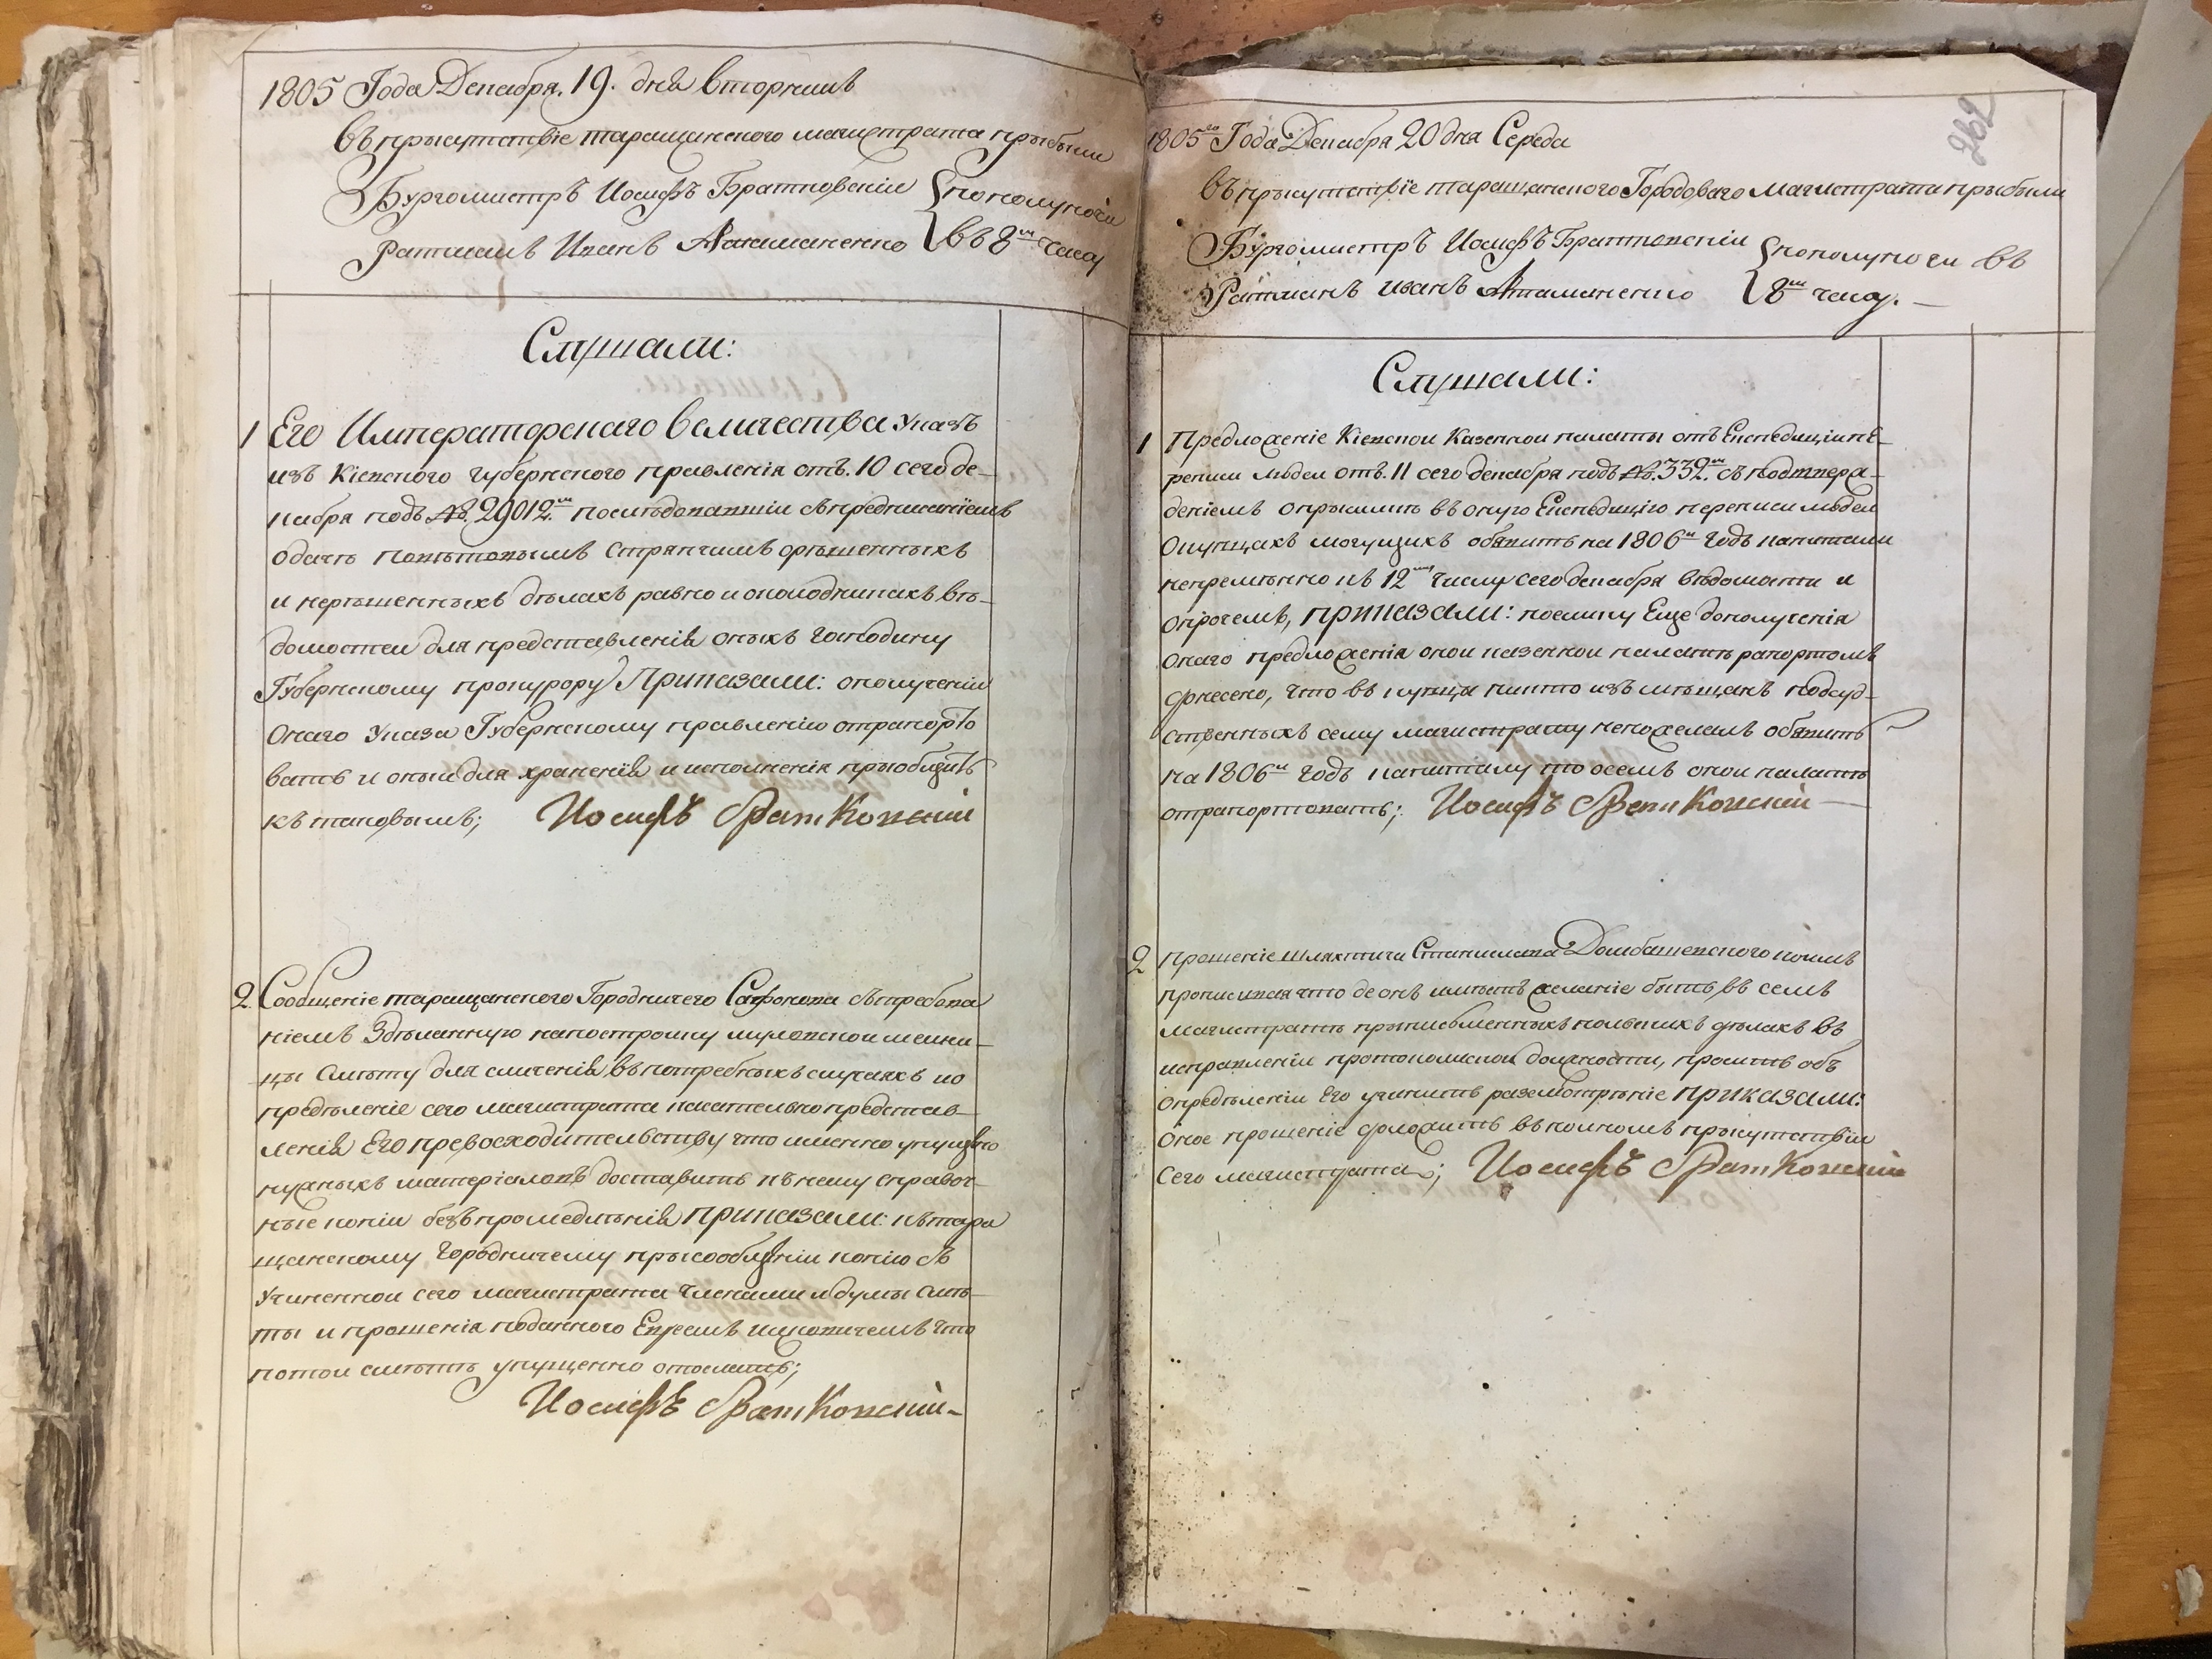 1805 Года Декабря. 19. дня вторникъ
въ прысутствіе таращанского магистрата прыбыли
Бургомистръ Иосифъ Братковскіи { пополуночи
Ратманъ Иванъ Атаманенко { въ 8м часу
Слушали:
1 Его Императорскаго величества Указъ
изъ Кіевского губернского правленія отъ. 10 сего де-
кабря подъ №. 29012м последовавшіи съ предписаніемъ
одачѣ повѣтовымъ стряпчимъ орѣшенныхъ
и нерѣшенныхъ дѣлахъ равно и околодникахъ вѣ-
домостеи для представленія оныхъ господину
Губернскому прокурору Приказали: ополученіи
онаго указа Губернскому правленію отрапорто
вать и оныи для храненія и исполненія прыобщить
къ таковымъ; Иосифъ Братковскіи
2 Сообщеніе таращанского Городничего Сафонова стребова
ніемъ Здѣланную напостройку мировскои мелни-
цы смѣту для сличенія въ потребныхъ случаяхъ ио
предѣленіе сего магистрата касательно представ-
ленія Его превосходительству что именно упущено
нужныхъ матеріаловъ доставить кнему справоч-
ные копіи безъ промедлѣнія приказали: ктара
щанскому городничему прысообщеніи копію съ
учиненнои сего магистрата членами идумы смѣ-
ты и прошенія поданного Евреемъ что
потои смѣтѣ упущенно отослать;
Иосифъ Братковскіи
262
1805го Года Декабря 20 дня Середа
въ прысутствіе таращанского Городоваго магистрата прыбыли
Бургомистръ Иосифъ Братковскіи { пополуночи въ
Ратманъ Иванъ Атаманенко { 8м часу.
Слушали:
1 Предложеніе Кіевскои Казеннои палаты отъ Експедиціи пе-
реписи людеи отъ. 11 сего декабря подъ №. 332м съ подтвержа-
деніемъ опрысылкѣ въ оную Експедицію переписи людеи
окупцахъ могущихъ обявить на 1806м годъ капиталы
непремѣнно къ 12му числу сего декабря вѣдомости и
опрочемъ, приказали: поелику Еще дополученія
онаго предложенія онои казеннои палатѣ рапортомъ
донесено, что въ купцы никто изъ мѣщанъ подсуд-
ственныхъ сему магистрату непожелалъ обявить
на 1806м годъ капиталу то осемъ онои палатѣ
отрапортовать; Иосифъ Братковскіи
2 прошеніе шляхтича Станислава Домбашевского коимъ
прописывая что де онъ имѣетъ желаніе быть въ семъ
магистратѣ прыписьменныхъ польскихъ дѣлахъ въ
исправленіи протокольнои должности, проситъ объ
опредѣленіи Его учинить разсмотрѣніе приказали:
оное прошеніе доложить въ полномъ прысутствіи
сего магистрата; Иосифъ Братковскіи